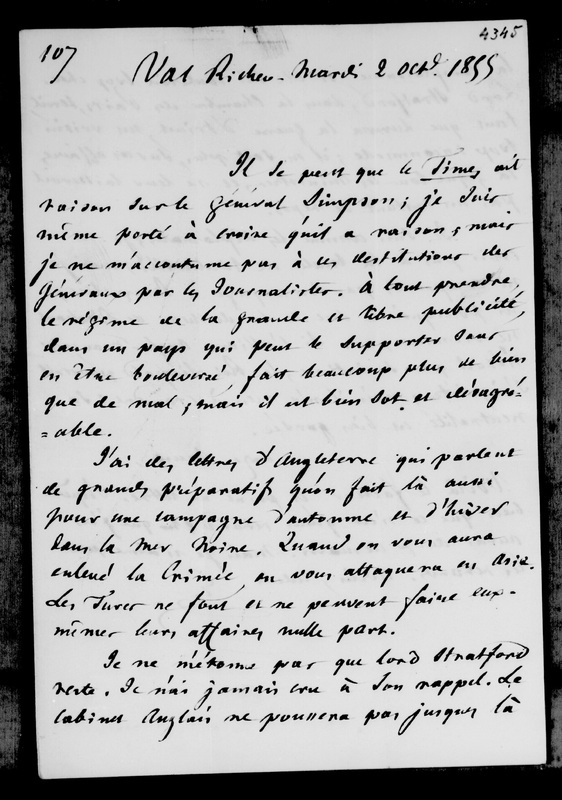 4345
107
Val Richer - Mardi 2 Octe. 1855
Il se peut que le Times ait
raison sur le général Simpson ; je suis
même porté à croire qu'il a raison ; mais
je ne m'accoutume pas à ces destitutions des
Généraux par les Journalistes. à tout prendre,
le régime de la grande et libre publicité,
dans un pays qui peut le supporter sans
en être bouleversé, fait beaucoup plus de bien
que de mal ; mais il est bien sot et désagré-
=able.
J'ai des lettres d'Angleterre qui parlent
de grands préparatifs qu'on fait là aussi
pour une campagne d'automne et d'hiver
dans la mer Noire. Quand on vous aura
enlevé la Crimée, on vous attaquera en Asie.
Les Turcs ne font et ne peuvent faire eux-
mêmes leurs affaires nulle part.
Je ne m'étonne pas que lord Stratford
reste. Je n'ai jamais cru à son rappel. Le
Cabinet Anglais ne poussera pas jusques là